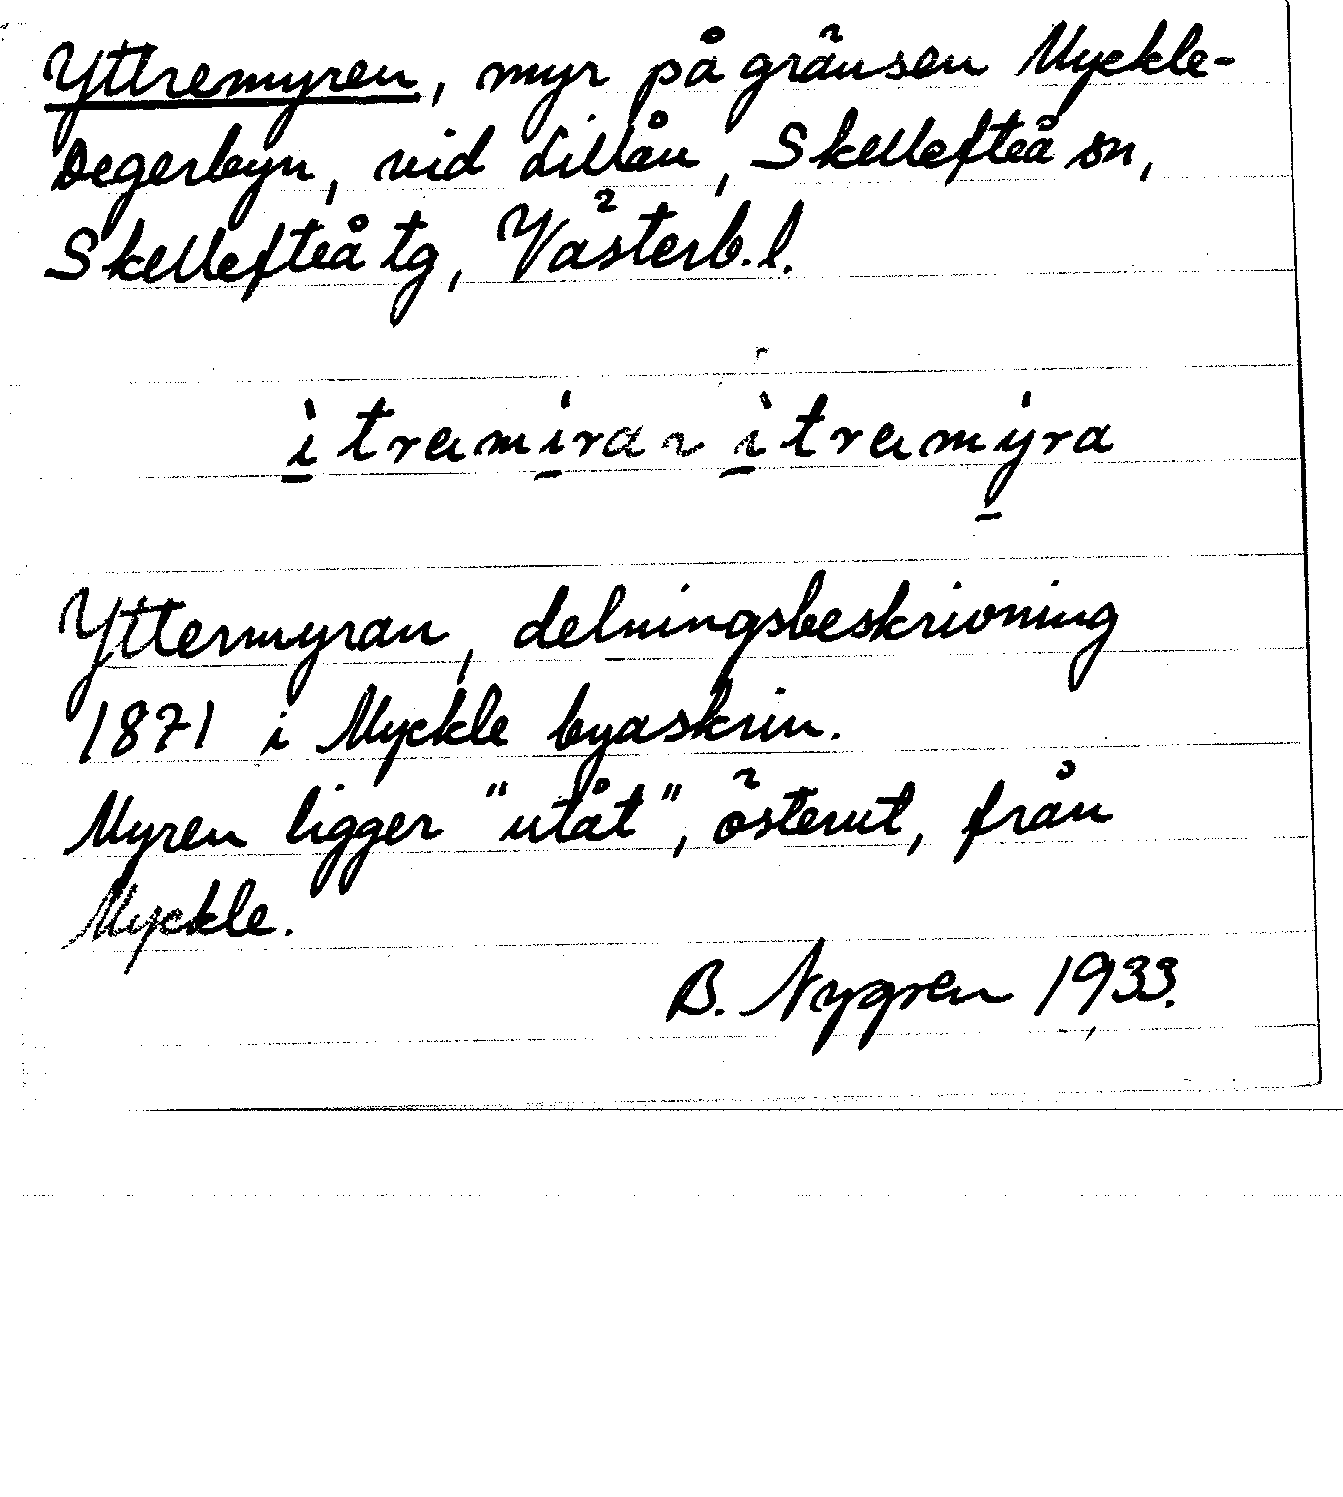 Yttremyren, myr på gränsen Myckle-
Degerbyn, vid Lillån, Skellefteå sn,
Skellefteå tg, Västerb. l.
ìtremi̱ra ~ ìtremy̱ra
Yttermyran, delningsbeskrivning
1871 i Myckle byaskrin.
Myren ligger "utåt", österut, från
Myckle.
B. Nygren 1933.